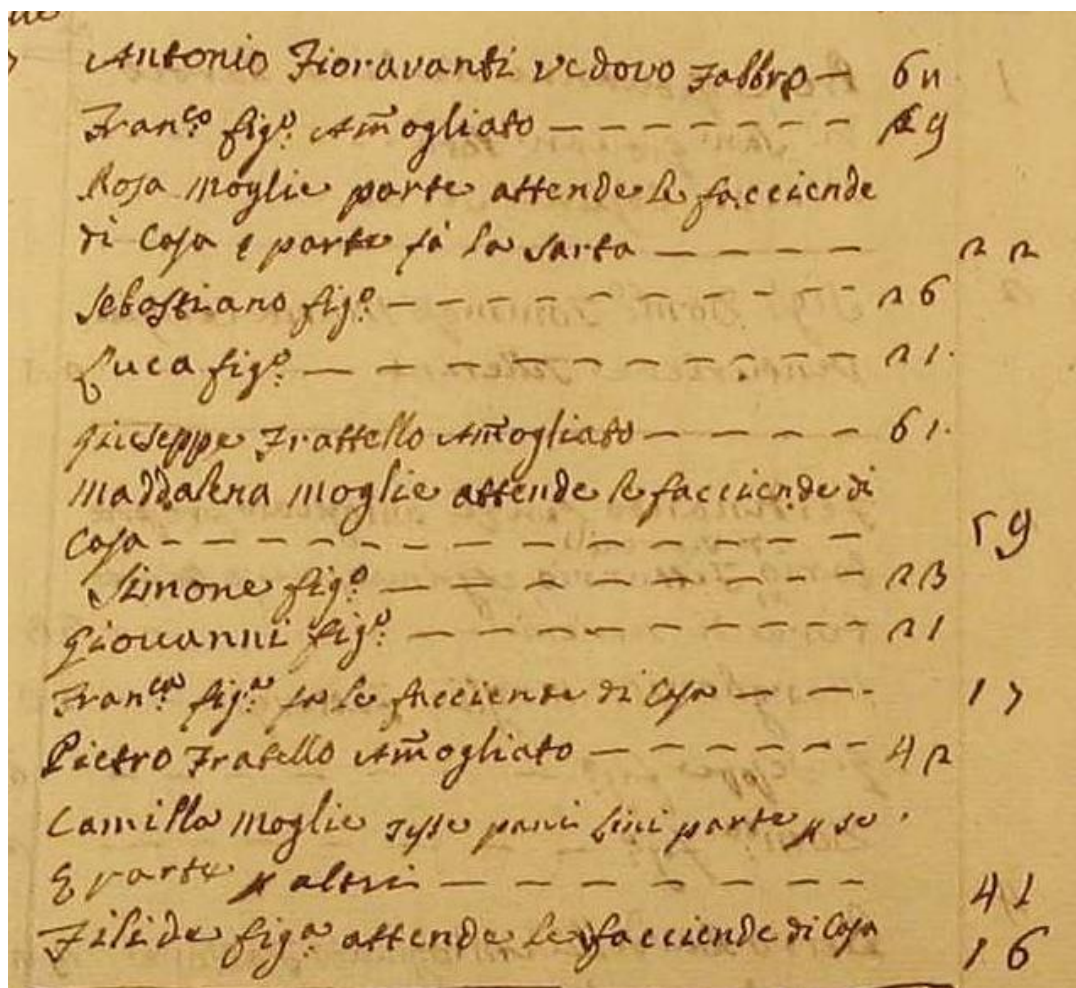 Antonio Fioravanti vedovo Fabbro — 62
Fran.co fig.o Am̃ogliato — — — — — — — 29
Rosa Moglie parte attende le facciende
di Casa e parte fà la sarta — — — — — 22
Sebastiano fig.o — — — — — — — — — 26
Luca fig.o — — — — — — — — — — 21.
Giuseppe Frattello Am̃ogliato — — — — — 61.
Maddalena Moglie attende le facciende di
Casa — — — — — — — — — — — — — 59
Simone fig.o — — — — — — — — — 23
Giovanni fig.o — — — — — — — — — 21
Fran.ca fig.a fa le facciende di Casa — — - 17
Pietro Fratello Am̃ogliato — — — — — — 42
Camilla Moglie tesse pani lini parte p se
E parte p altri — — — — — — — — 41
Filide fig.a attende le facciende di Casa 16